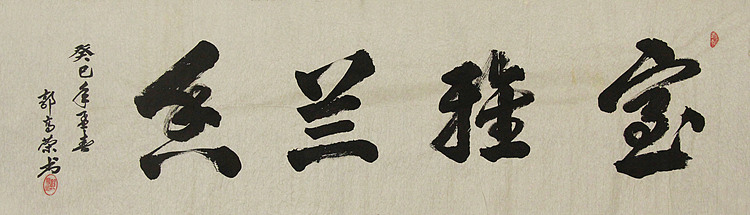 室雅兰香
癸巳年孟春
郭高荣书